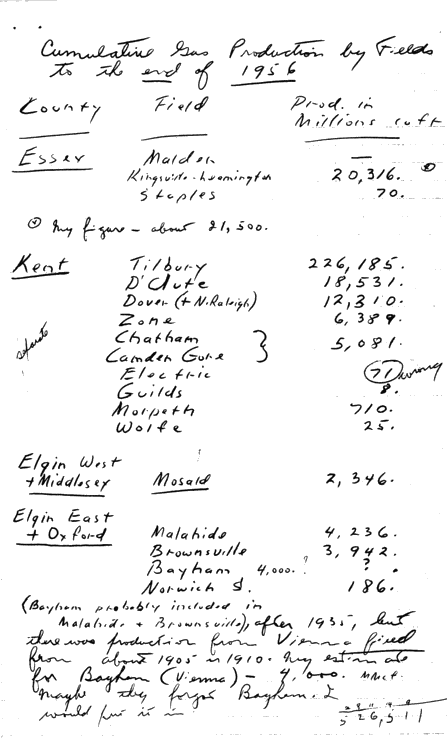 Cumulative Gas Production by Fields
to the end of 1956
County Field Prod. in
Millions cu ft
Essex Malden —
Kingsville-Leamington 20,316. ⊙
Staples 70.
⊙ My figure – about 21,500.
Kent Tilbury 226,185.
D'Clute 18,531.
Dover (+ N. Raleigh) 12,310.
Zone 6,389.
separate Chatham } 5,081.
Camden Gore
Electric (71) wrong
Guilds 8.
Morpeth 710.
Wolfe 25.
Elgin West
+ Middlesex Mosaid 2,346.
Elgin East
+ Oxford Malahide 4,236.
Brownsville 3,942.
Bayham 4,000. ? ? .
Norwich S. 186.
(Bayham probably included in
Malahide + Brownsville), after 1935, but
there was production from Vienna field
from about 1905 to 1910. My estimate
for Bayham (Vienna) – 4,000. MMcf.
Maybe they forgot Bayham. I
would put it in